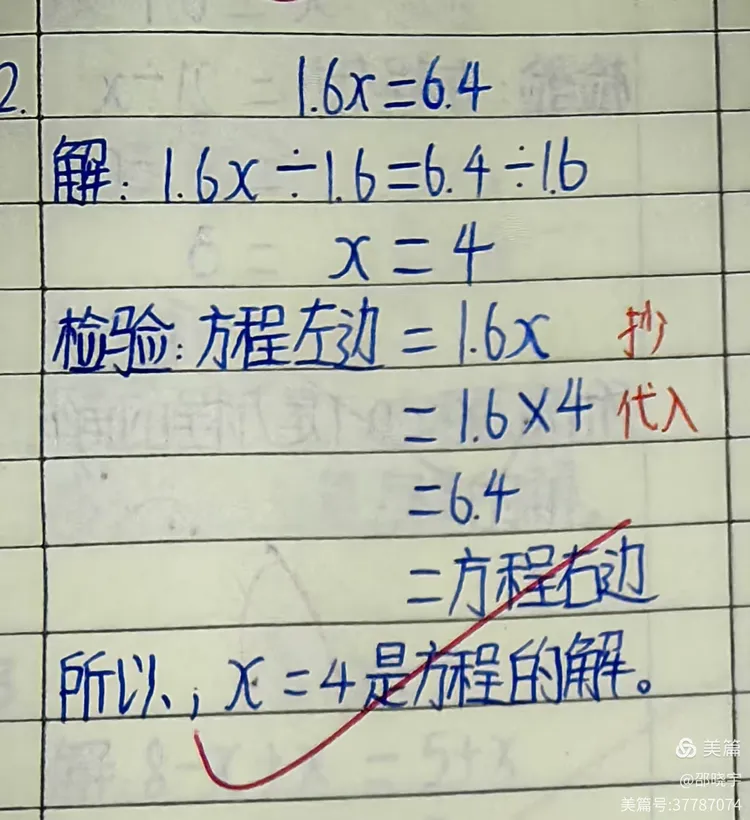 2. 1.6x=6.4
解:1.6x÷1.6=6.4÷1.6
x=4
检验:方程左边=1.6x 抄
=1.6×4 代入
=6.4
=方程右边
所以,x=4是方程的解。
美篇
@邵晓宇
美篇号:37787074